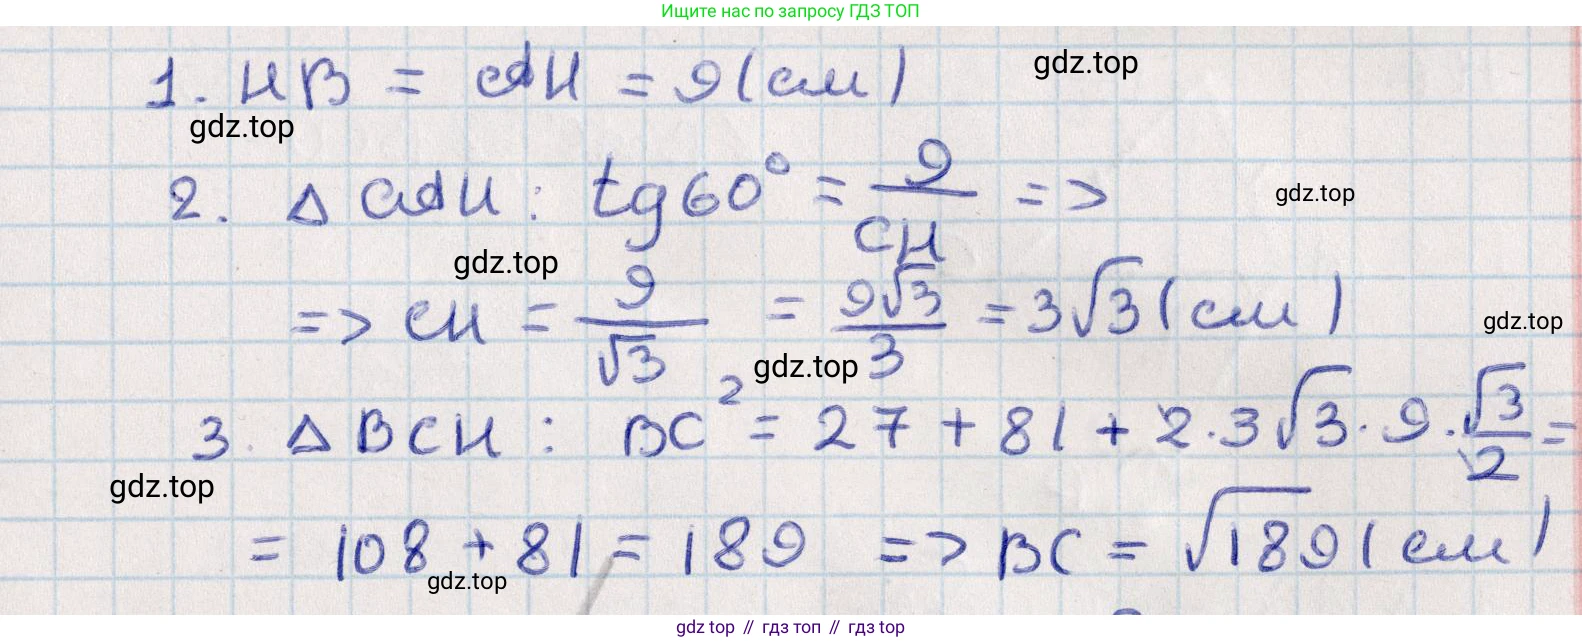 Ищите нас по запросу ГДЗ ТОП
1. HB = AH = 9 (см)
gdz.top
gdz.top
2. △ CAH : tg60° = 9/CH =>
gdz.top
gdz.top
=> CH = 9/√3 = 9√3/3 = 3√3 (см)
gdz.top
gdz.top
3. △ BCH : BC² = 27 + 81 + 2·3√3·9·√3/2 =
gdz.top
= 108 + 81 = 189 => BC = √189 (см)
gdz.top
gdz top // гдз топ // gdz top